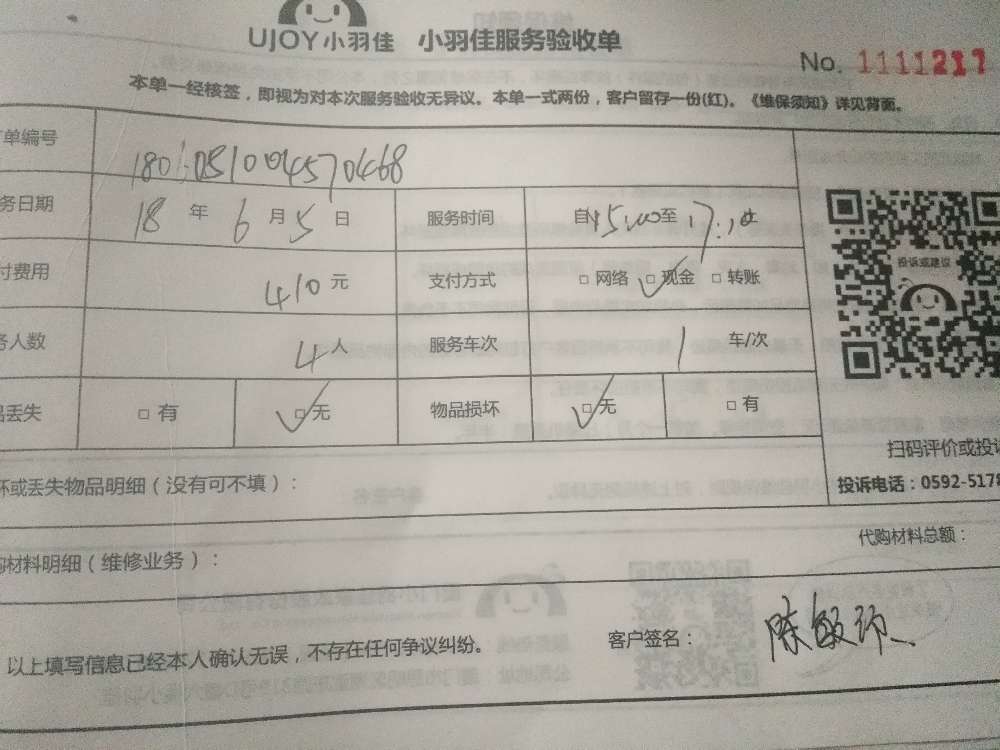 UJOY小羽佳 小羽佳服务验收单
No. 1111217
本单一经核签，即视为对本次服务验收无异议。本单一式两份，客户留存一份(红)。《维保须知》详见背面。
单编号
务日期 18 年 6 月 5 日 服务时间 自15:00至17:10止
付费用 410 元 支付方式 □ 网络 □ 现金 □ 转账
务人数 4 人 服务车次 1 车/次
品丢失 □ 有 □ 无 物品损坏 □ 无 □ 有
投诉或建议
扫码评价或投诉
投诉电话：0592-5178
坏或丢失物品明细（没有可不填）：
购材料明细（维修业务）： 代购材料总额：
以上填写信息已经本人确认无误，不存在任何争议纠纷。 客户签名：陈敏